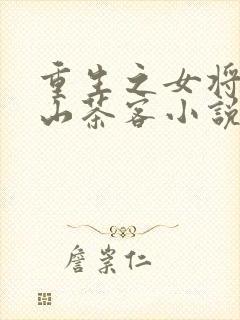 重生之女将
山茶客小說
詹崇仁